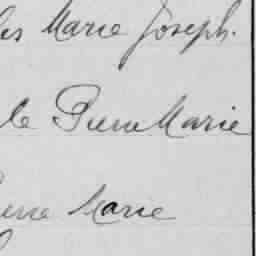 Marie Joseph.
le Pierre Marie
Marie